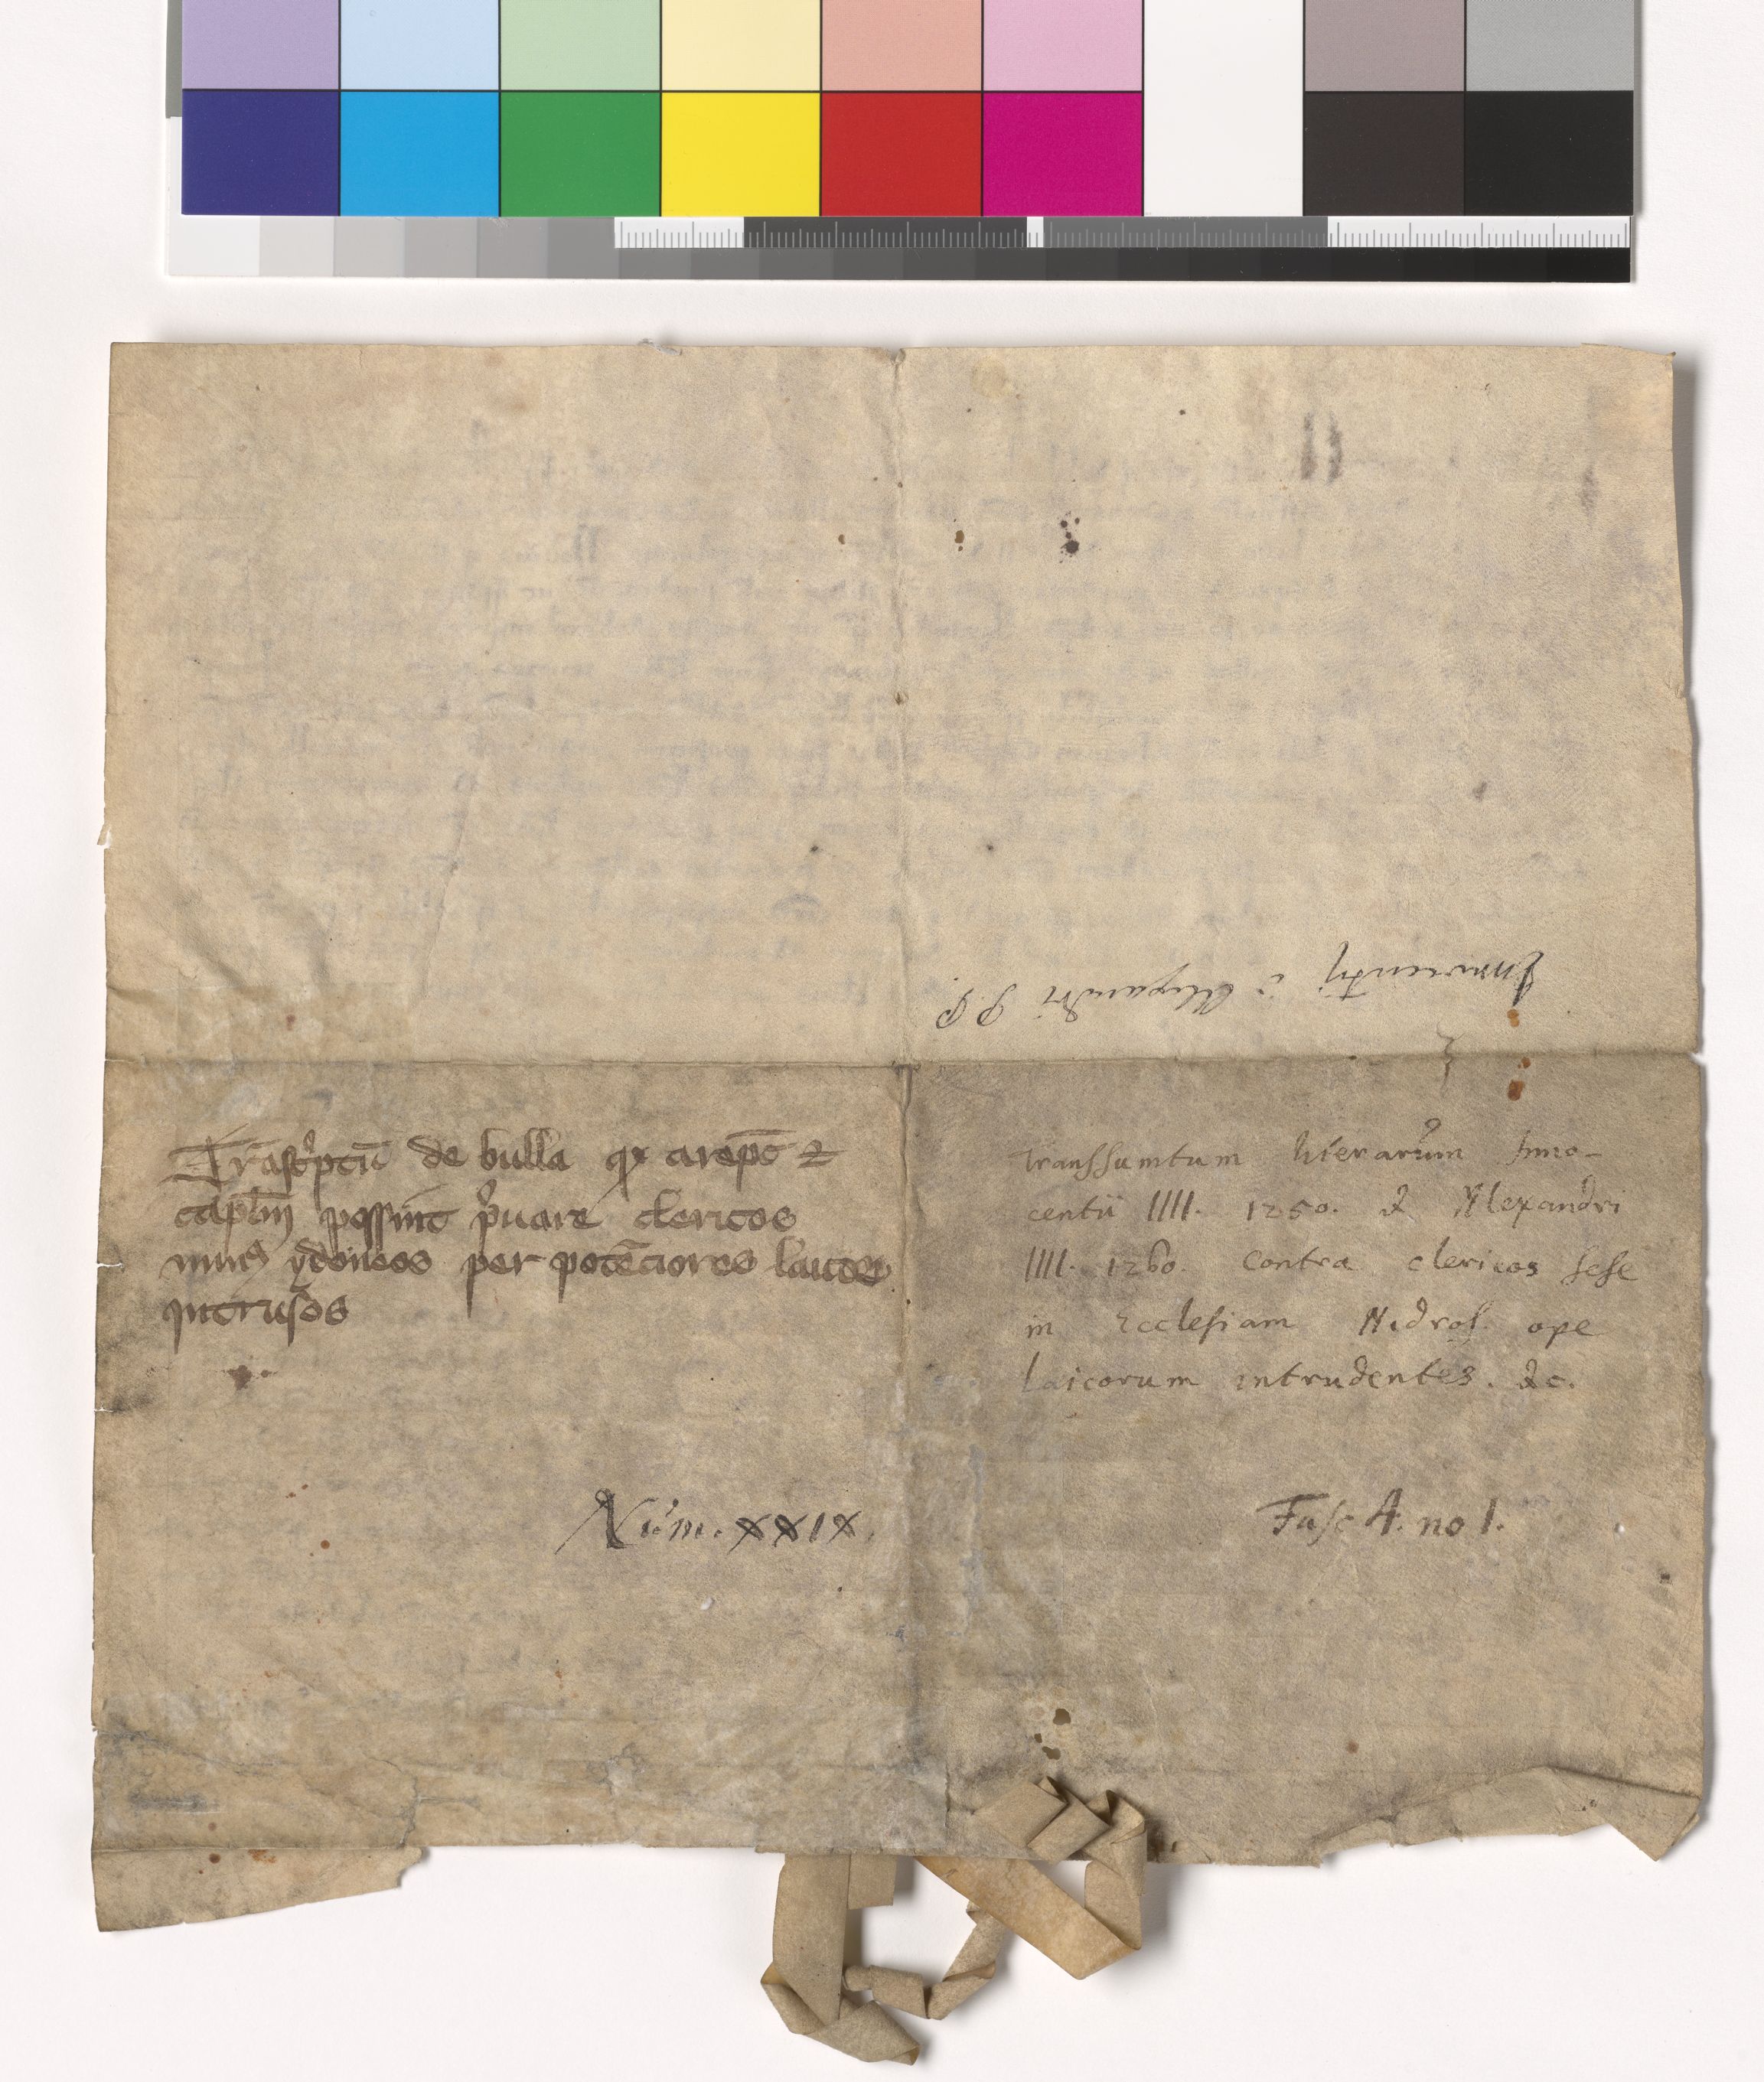 Innocentij & Alexandri P P
Trãsc'ptũ de bulla qx arep̄c̄ ⁊
capl'm possint p'uare clericos
minꝰ ydoneos per potẽciores laicos
intrusos
Transsumtum literarum Inno-
centii IIII. 1250. & Alexandri
IIII. 1260. contra clericos sese
in Ecclesiam Nidros. ope
Laicorum intrudentes. &c.
Núm. XXIX.
Fasc A. no 1.